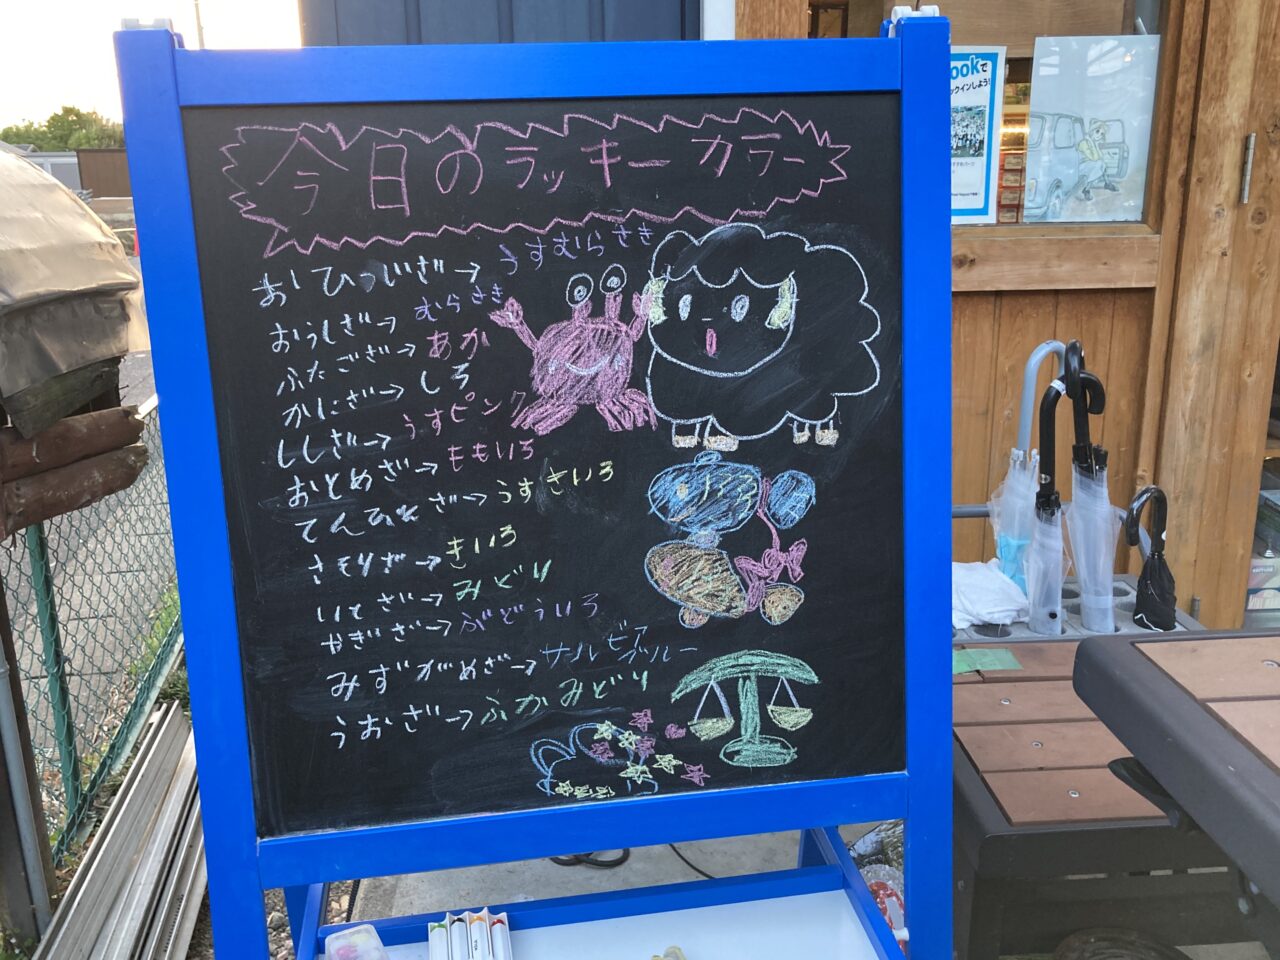 今日のラッキーカラー
おひつじざ→うすむらさき
おうしざ→むらさき
ふたござ→あか
かにざ→しろ
ししざ→うすピンク
おとめざ→ももいろ
てんびんざ→うすきいろ
さそりざ→きいろ
いてざ→みどり
やぎざ→ぶどういろ
みずがめざ→サルビアブルー
うおざ→ふかみどり
ookで
ックインしよう!